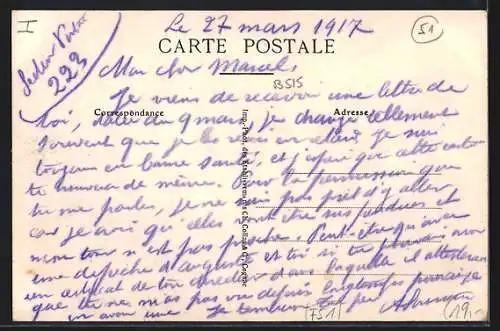 I
Secteur Postal
223
Le 27 mars 1917
51
CARTE POSTALE
Mon cher Marcel
B515
Je viens de recevoir une lettre de
Correspondance
Adresse
toi, datée du 9 mars, je change tellement
souvent que je les reçois en retard. Je suis
toujours en bonne santé, et j'espère que cette carte
te trouvera de même. Pour la permission que
tu me parles, je ne suis pas prêt d'y aller
car je crois qu'elles vont être suspendues et
mon tour n'est pas proche. Peut-être qu'avec
une dépêche d' et toi si tu avoir
un certificat de ton directeur dans laquelle il attesterait
que tu ne m'as pas vu depuis longtemps pourrais-je
en avoir une. Je
Imp. Phot. des Etablissements Ch. Collas & Cie, Cognac
F51
19